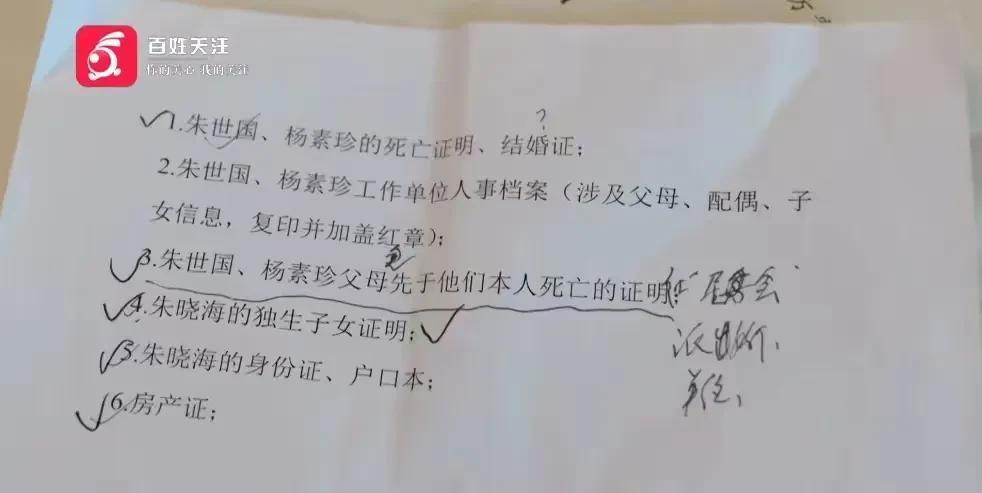 百姓关注
你的关心 我的关注
?
1.朱世国、杨素珍的死亡证明、结婚证;
2.朱世国、杨素珍工作单位人事档案（涉及父母、配偶、子
女信息，复印并加盖红章);
3.朱世国、杨素珍父母先于他们本人死亡的证明;
居委会
派出所、
单位、
4.朱晓海的独生子女证明;
5.朱晓海的身份证、户口本;
6.房产证;